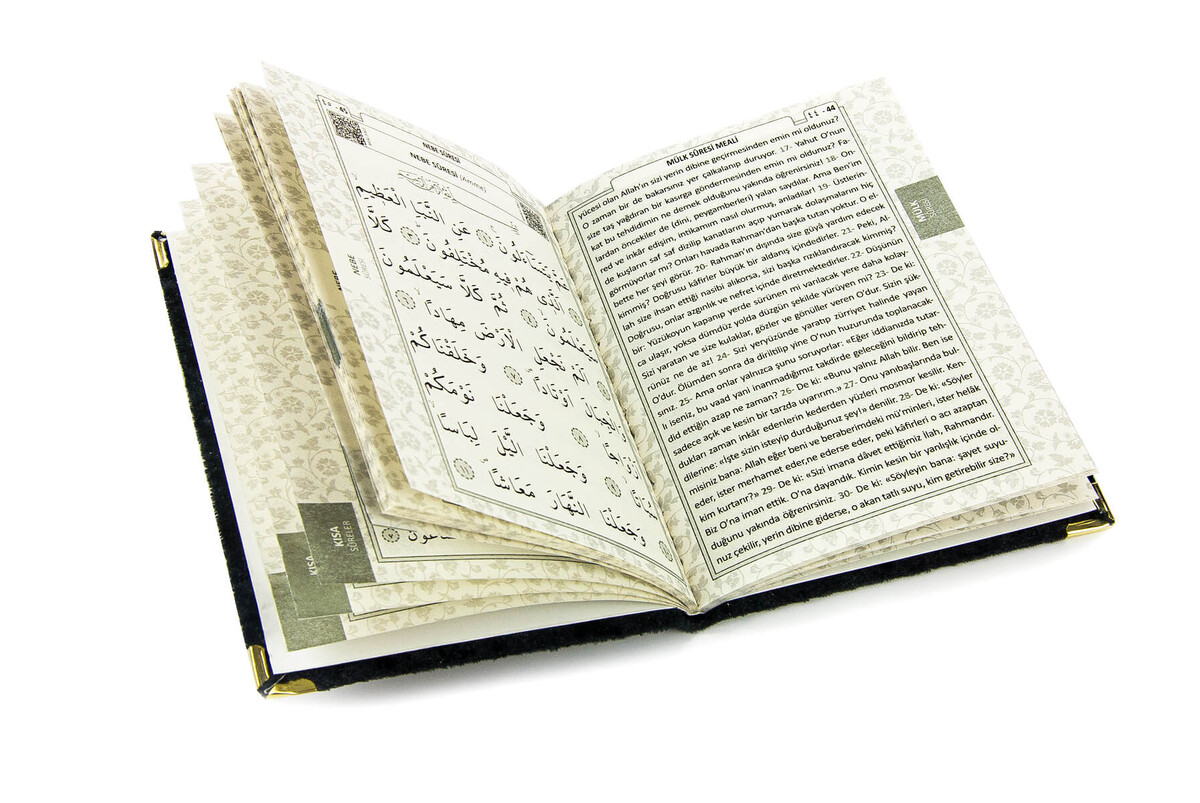 ٤٤ - 44
MÜLK SÛRESİ MEALİ
yücesi olan Allah'ın sizi yerin dibine geçirmesinden emin mi oldunuz?
O zaman bir de bakarsınız yer çalkalanıp duruyor. 17- Yahut O'nun
size taş yağdıran bir kasırga göndermesinden emin mi oldunuz? Fa-
kat bu tehdidimin ne demek olduğunu yakında öğrenirsiniz! 18- On-
lardan öncekiler de (dini, peygamberleri) yalan saydılar. Ama Ben'im
red ve inkâr edişim, intikamım nasıl olurmuş, anladılar! 19- Üstlerin-
de kuşların saf saf dizilip kanatlarını açıp yumarak dolaşmalarını hiç
görmüyorlar mı? Onları havada Rahman'dan başka tutan yoktur. O el-
bette her şeyi görür. 20- Rahman'ın dışında size gûyâ yardım edecek
kimmiş? Doğrusu kâfirler büyük bir aldanış içindedirler. 21- Peki, Al-
lah size ihsan ettiği nasibi alıkorsa, sizi başka rızıklandıracak kimmiş?
Doğrusu, onlar azgınlık ve nefret içinde diretmektedirler. 22- Düşünün
bir: Yüzükoyun kapanıp yerde sürünen mi varılacak yere daha kolay-
ca ulaşır, yoksa dümdüz yolda düzgün şekilde yürüyen mi? 23- De ki:
Sizi yaratan ve size kulaklar, gözler ve gönüller veren O'dur. Sizin şük-
rünüz ne de az! 24- Sizi yeryüzünde yaratıp zürriyet halinde yayan
O'dur. Ölümden sonra da diriltilip yine O'nun huzurunda toplanacak-
sınız. 25- Ama onlar yalnızca şunu soruyorlar: «Eğer iddianızda tutar-
lı iseniz, bu vaad yani inanmadığımız takdirde geleceğini bildirip teh-
did ettiğin azap ne zaman? 26- De ki: «Bunu yalnız Allah bilir. Ben ise
sadece açık ve kesin bir tarzda uyarırım.» 27- Onu yanıbaşlarında bul-
dukları zaman inkâr edenlerin kederden yüzleri mosmor kesilir. Ken-
dilerine: «İşte sizin isteyip durduğunuz şey!» denilir. 28- De ki: «Söyler
misiniz bana: Allah eğer beni ve beraberimdeki mü'minleri, ister helâk
eder, ister merhamet eder,ne ederse eder, peki kâfirleri o acı azaptan
kim kurtarır?» 29- De ki: «Sizi imana dâvet ettiğimiz ilah, Rahmandır.
Biz O'na iman ettik. O'na dayandık. Kimin kesin bir yanlışlık içinde ol-
duğunu yakında öğrenirsiniz. 30- De ki: «Söyleyin bana: şayet suyu-
nuz çekilir, yerin dibine giderse, o akan tatlı suyu, kim getirebilir size?»
MÜLK
Sûresi
٤٥ - 45
NEBE SÛRESİ
NEBE SÛRESİ (Amme)
عَمَّ يَتَسَاءَلُونَ عَنِ النَّبَإِ الْعَظِيمِ
اَلَّذِي هُمْ فِيهِ مُخْتَلِفُونَ كَلَّا
سَيَعْلَمُونَ ثُمَّ كَلَّا سَيَعْلَمُونَ
اَلَمْ نَجْعَلِ الْاَرْضَ مِهَادًا
وَالْجِبَالَ اَوْتَادًا وَخَلَقْنَاكُمْ
اَزْوَاجًا وَجَعَلْنَا نَوْمَكُمْ
وَجَعَلْنَا الَّيْلَ لِبَاسًا
وَجَعَلْنَا النَّهَارَ مَعَاشًا
NEBE
NEBE
KISA
SÛRELER
KISA